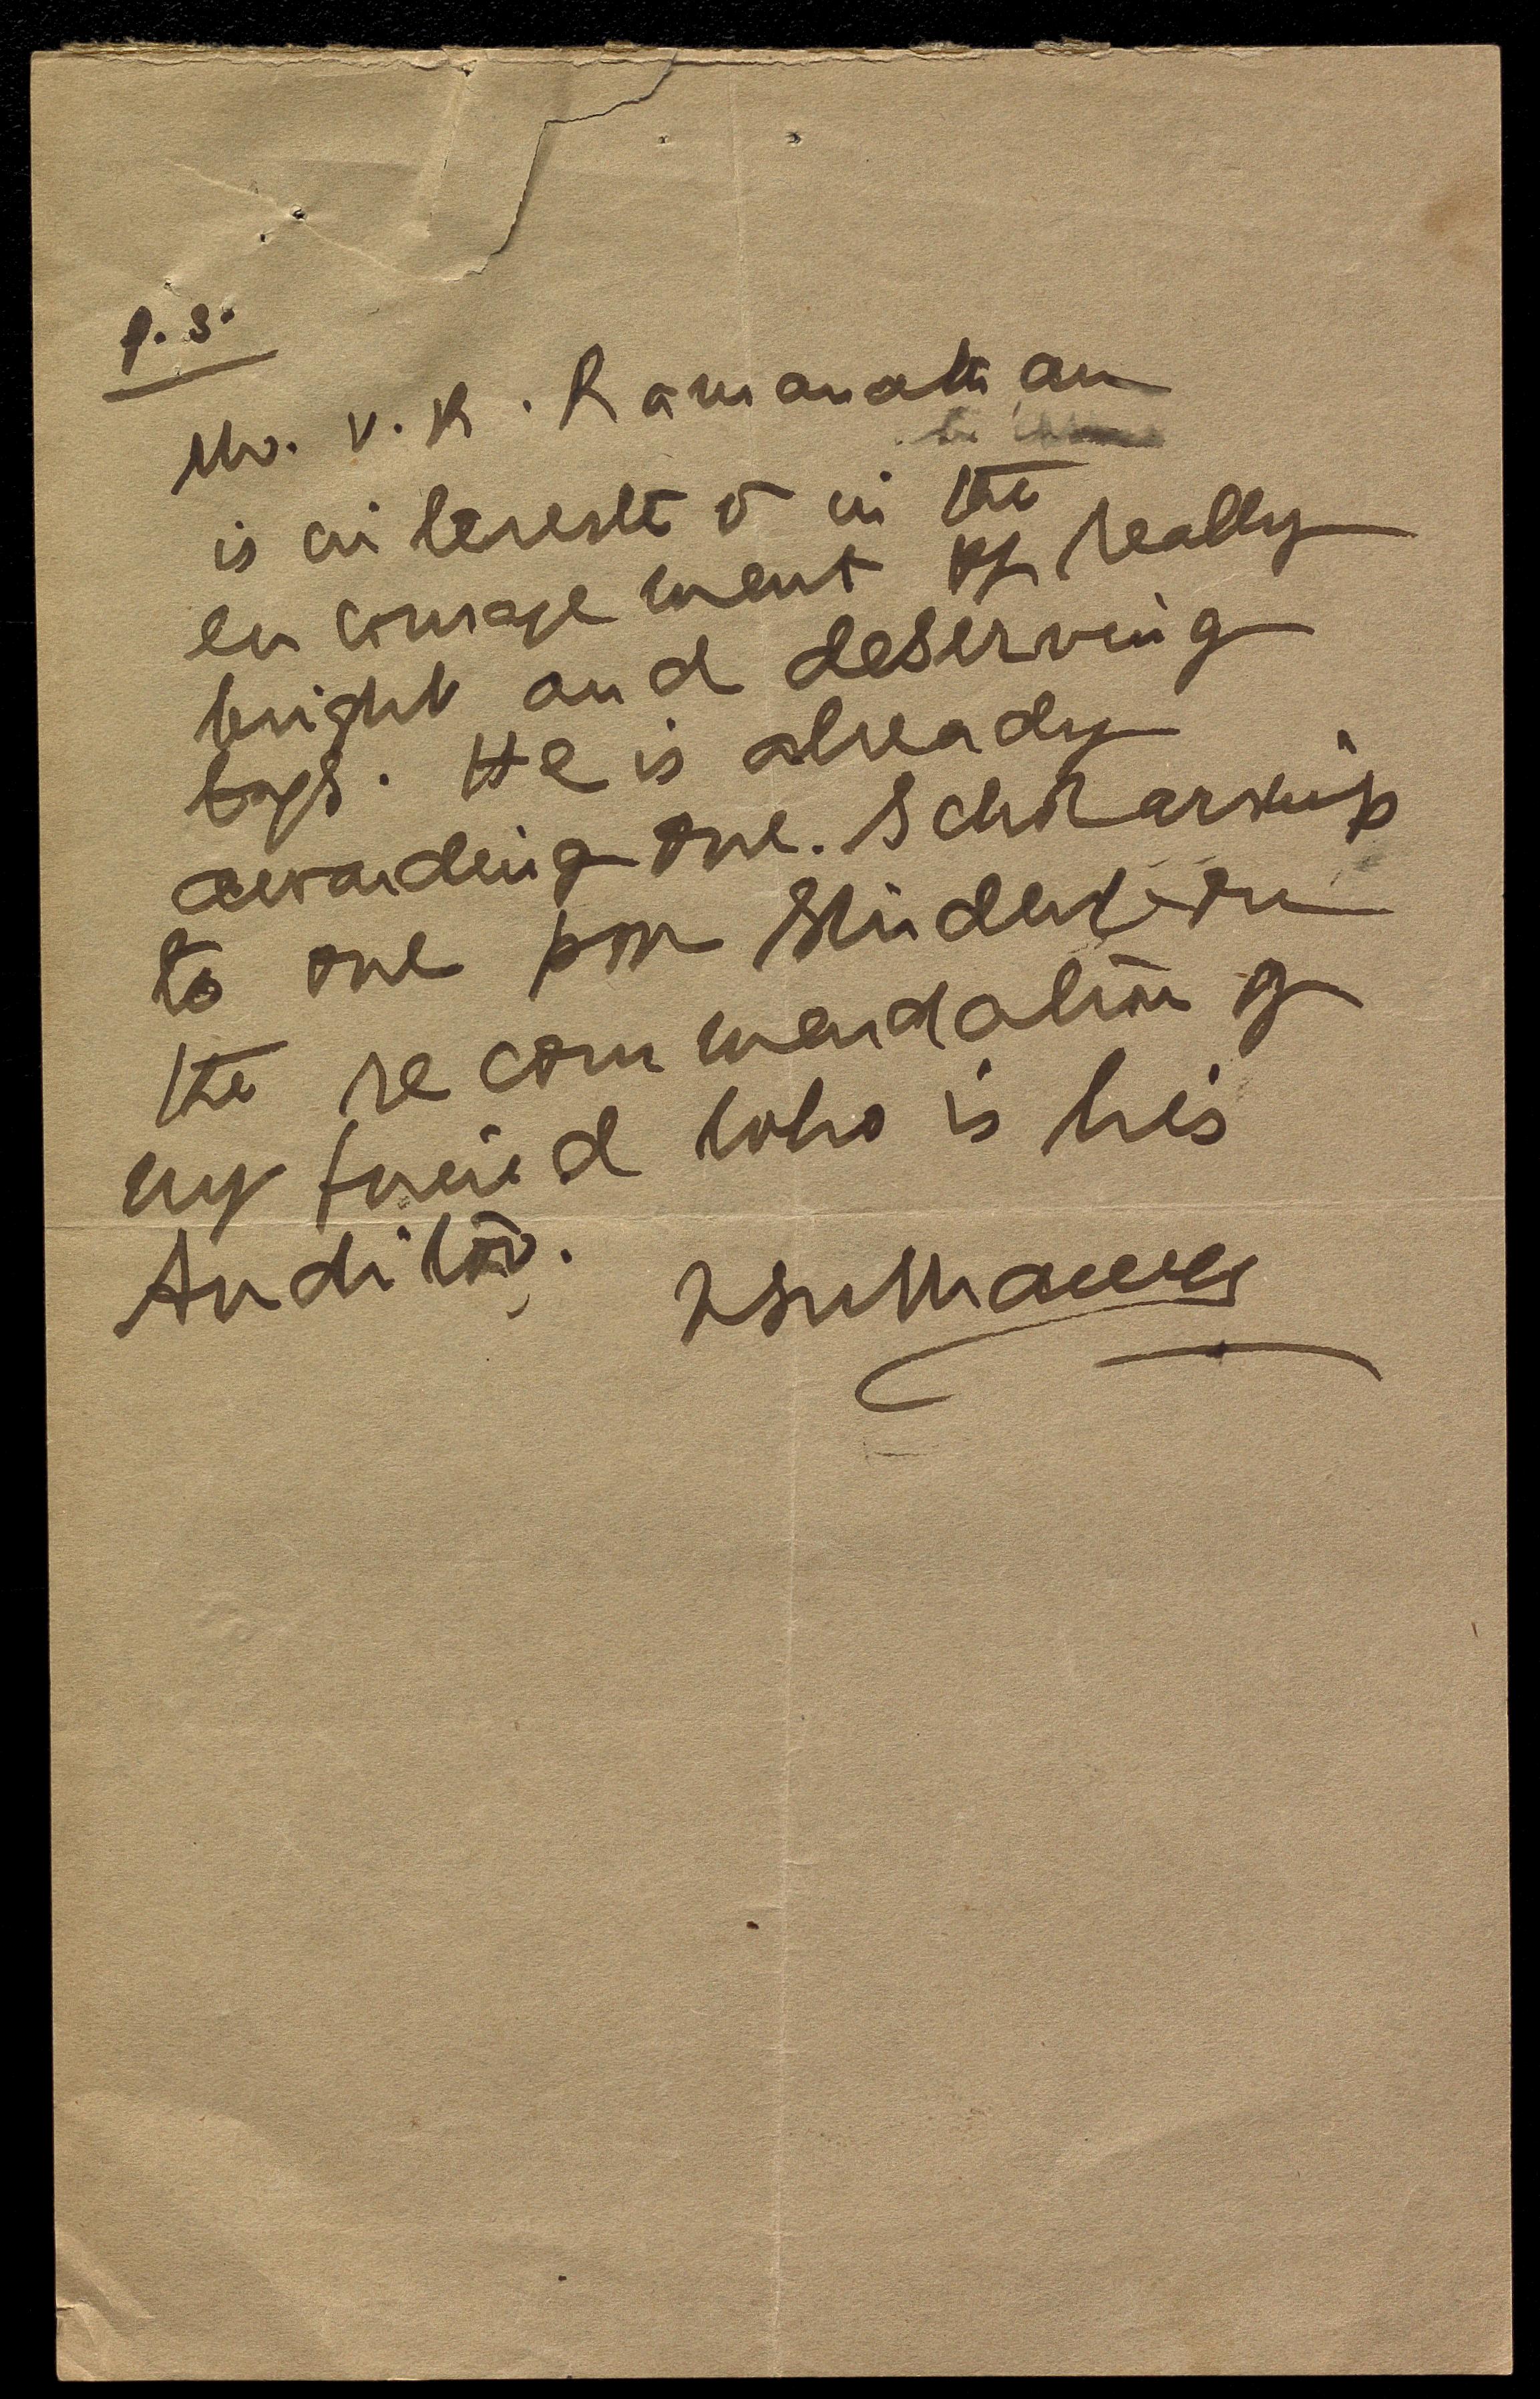 P.S.
Mr. V. R. Ramanathan
is interested in the
encouragement of really
bright and deserving
boys. He is already
awarding one. Scholarship
to one poor student on
the recommendation of
my friend who is his
Auditor.